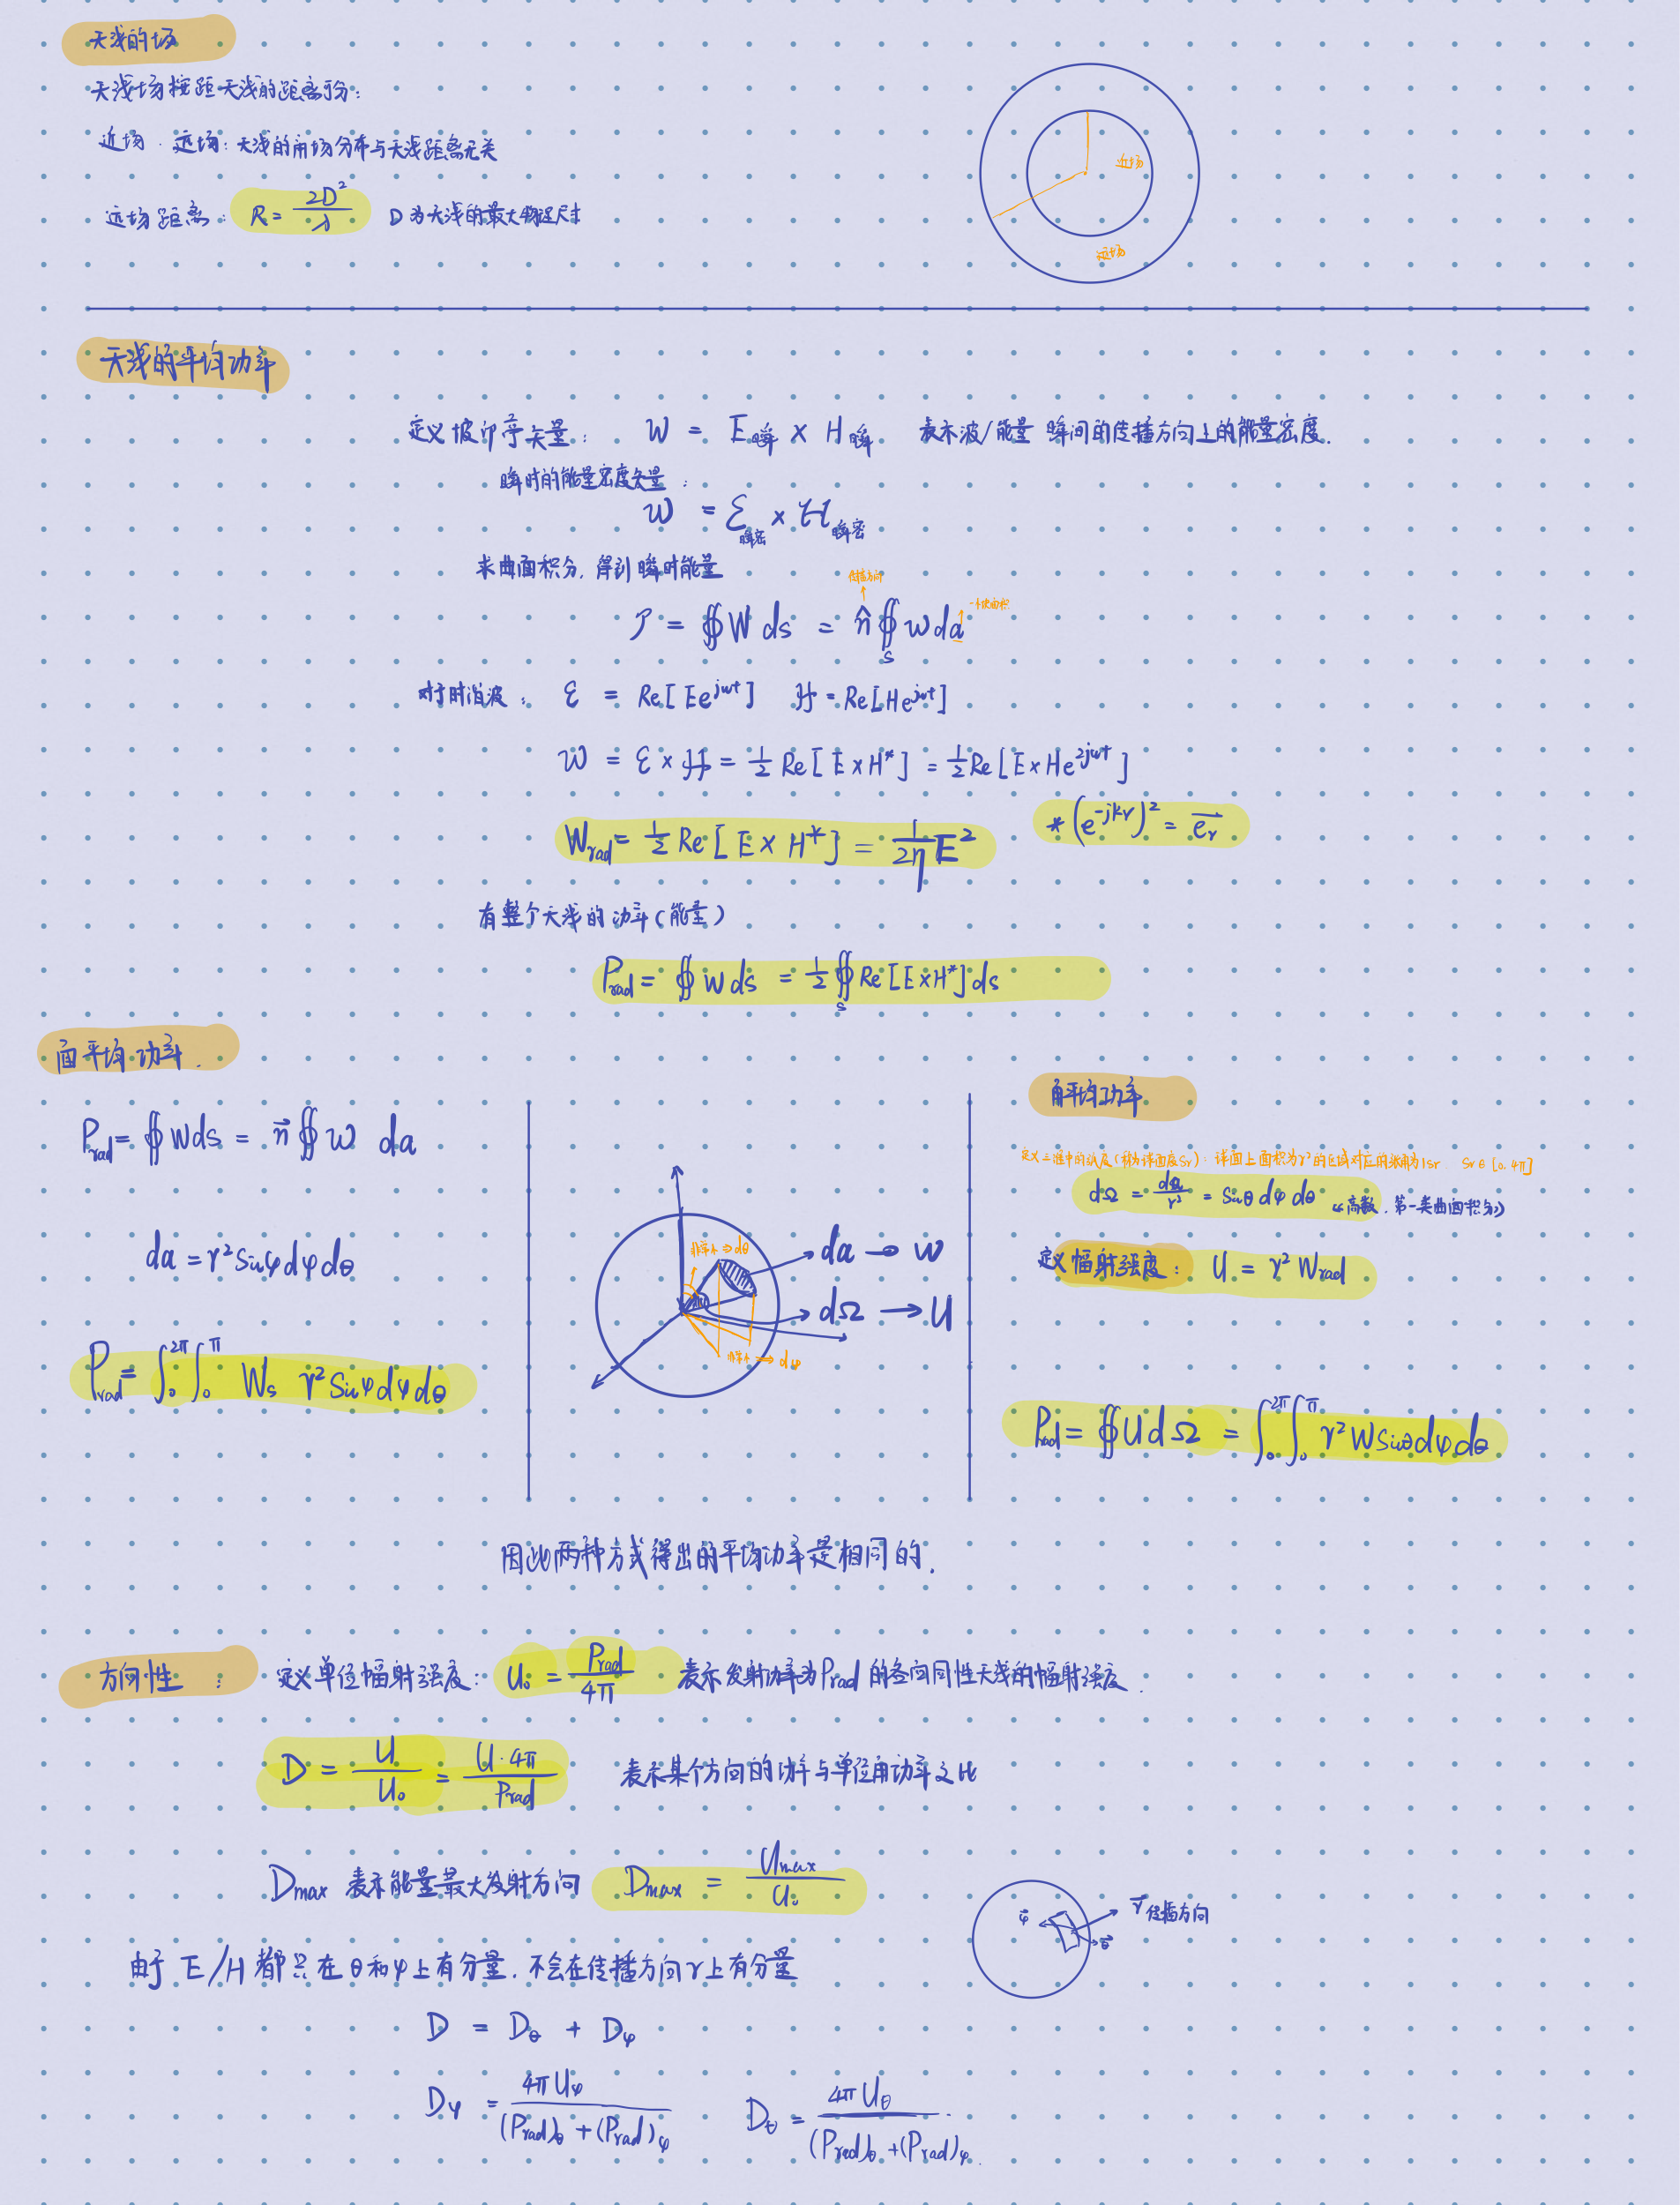 天线的场
天线场按距天线的距离可分:
近场 · 远场: 天线的角场分布与天线距离无关
远场距离: R = 2D²/λ D为天线的最大物理尺寸
近场
远场
天线的平均功率
定义坡印亭矢量: W = E瞬 × H瞬 表示波/能量 瞬间的传播方向上的能量密度.
瞬时的能量密度矢量:
W = ℰ瞬密 × ℋ瞬密
求曲面积分, 得到瞬时能量
传播方向
P = ∯ W ds = n̂ ∯_s w da
对于时谐波: ℰ = Re[Ee^{jωt}] ℋ = Re[He^{jωt}]
W = ℰ × ℋ = ½ Re[E×H*] = ½ Re[E×He^{2jωt}]
W_rad = ½ Re[E×H*] = 1/(2η) E² * (e^{-jkr})² = e_r⃗
有整个天线的功率(能量)
P_rad = ∯ W ds = ½ ∯_s Re[E×H*] ds
面平均功率.
P_rad = ∯ W ds = n⃗ ∯ w da
da = r² sinφ dφ dθ
P_rad = ∫₀^{2π} ∫₀^π W_s r² sinφ dφ dθ
⇒ dθ
da → w
dΩ → U
→ dφ
角平均功率
定义三维中的 (称为球面度Sr): 球面上面积为r²的区域对应的 为1sr. Sr∈[0, 4π]
dΩ = da/r² = sinθ dφ dθ 《高数, 第一类曲面积分》
定义 幅射强度: U = r² W_rad
P_rad = ∯ U dΩ = ∫₀^{2π} ∫₀^π r² W sinθ dφ dθ
因此两种方式得出的平均功率是相同的.
方向性 : 定义单位幅射强度: U₀ = P_rad/4π 表示发射功率为P_rad的各向同性天线的幅射强度.
D = U/U₀ = U·4π/P_rad 表示某个方向的功率与单位角功率之比
D_max 表示能量最大发射方向 D_max = U_max/U₀
φ⃗ r⃗ 传播方向
θ⃗
由于 E/H 都只在θ和φ上有分量, 不会在传播方向r上有分量
D = D_θ + D_φ
D_φ = 4πU_φ/((P_rad)_θ + (P_rad)_φ) D_θ = 4πU_θ/((P_rad)_θ + (P_rad)_φ).